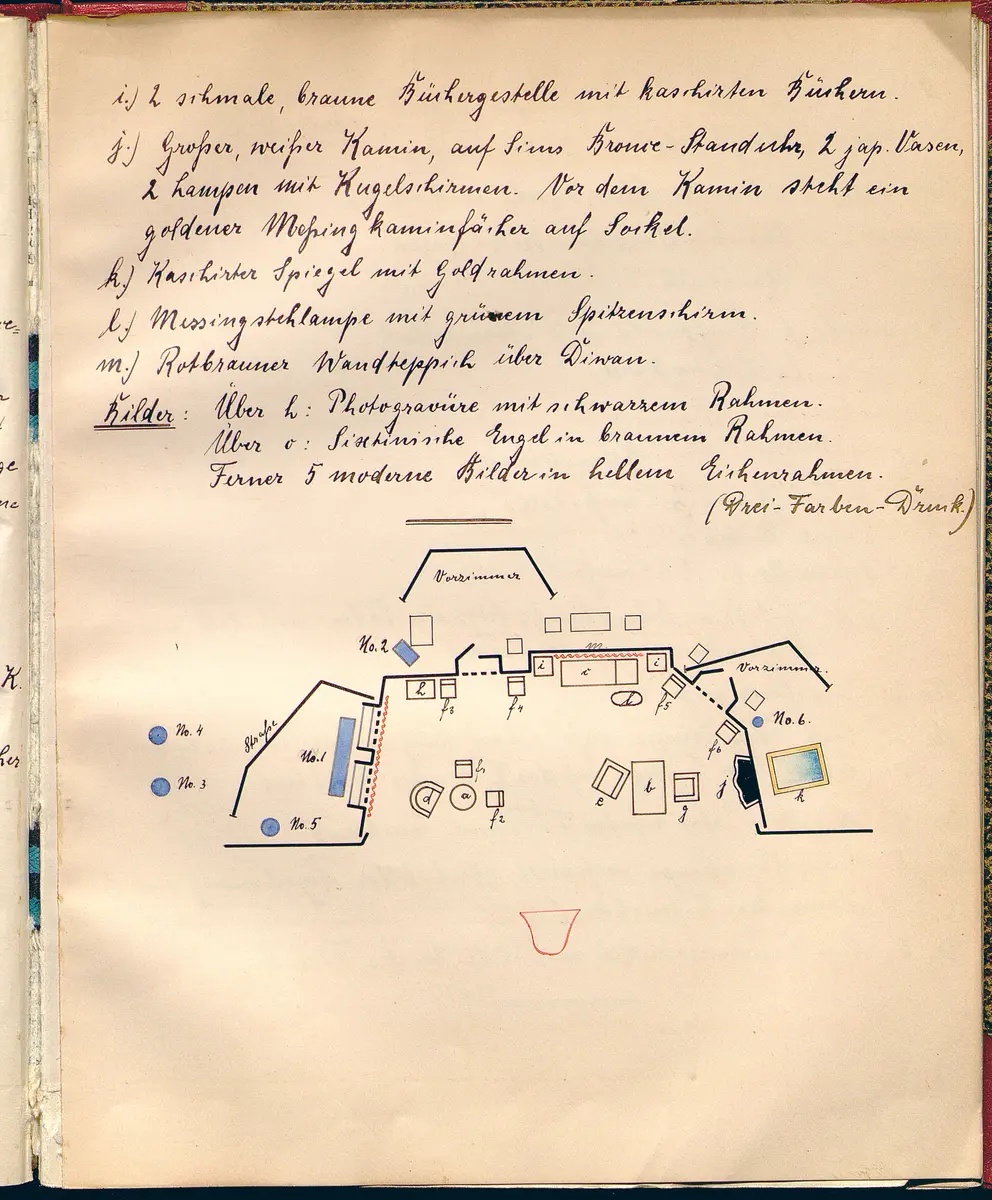 i.) 2 schmale, braune Büchergestelle mit kaschirten Büchern.
j.) Großer, weißer Kamin, auf Sims Bronce-Standuhr, 2 jap. Vasen,
2 Lampen mit Kugelschirmen. Vor dem Kamin steht ein
goldener Meßingkaminfächer auf Sockel.
k.) Kaschirter Spiegel mit Goldrahmen.
l.) Messingstehlampe mit grünem Spitzenschirm.
m.) Rotbrauner Wandteppich über Diwan.
Bilder: Über h: Photogravüre mit schwarzem Rahmen.
Über o: Sixtinische Engel in braunem Rahmen.
Ferner 5 moderne Bilder in hellem Eichenrahmen.
(Drei-Farben-Druck.)
Vorzimmer
No. 2
m.
i
c
i
Vorzimmer.
h
f3
f4
l
f5
Straße
No. 4
No. 6.
f6
No. 1
No. 3
d
a
f1
f2
e
b
g
j
k
No. 5
K.